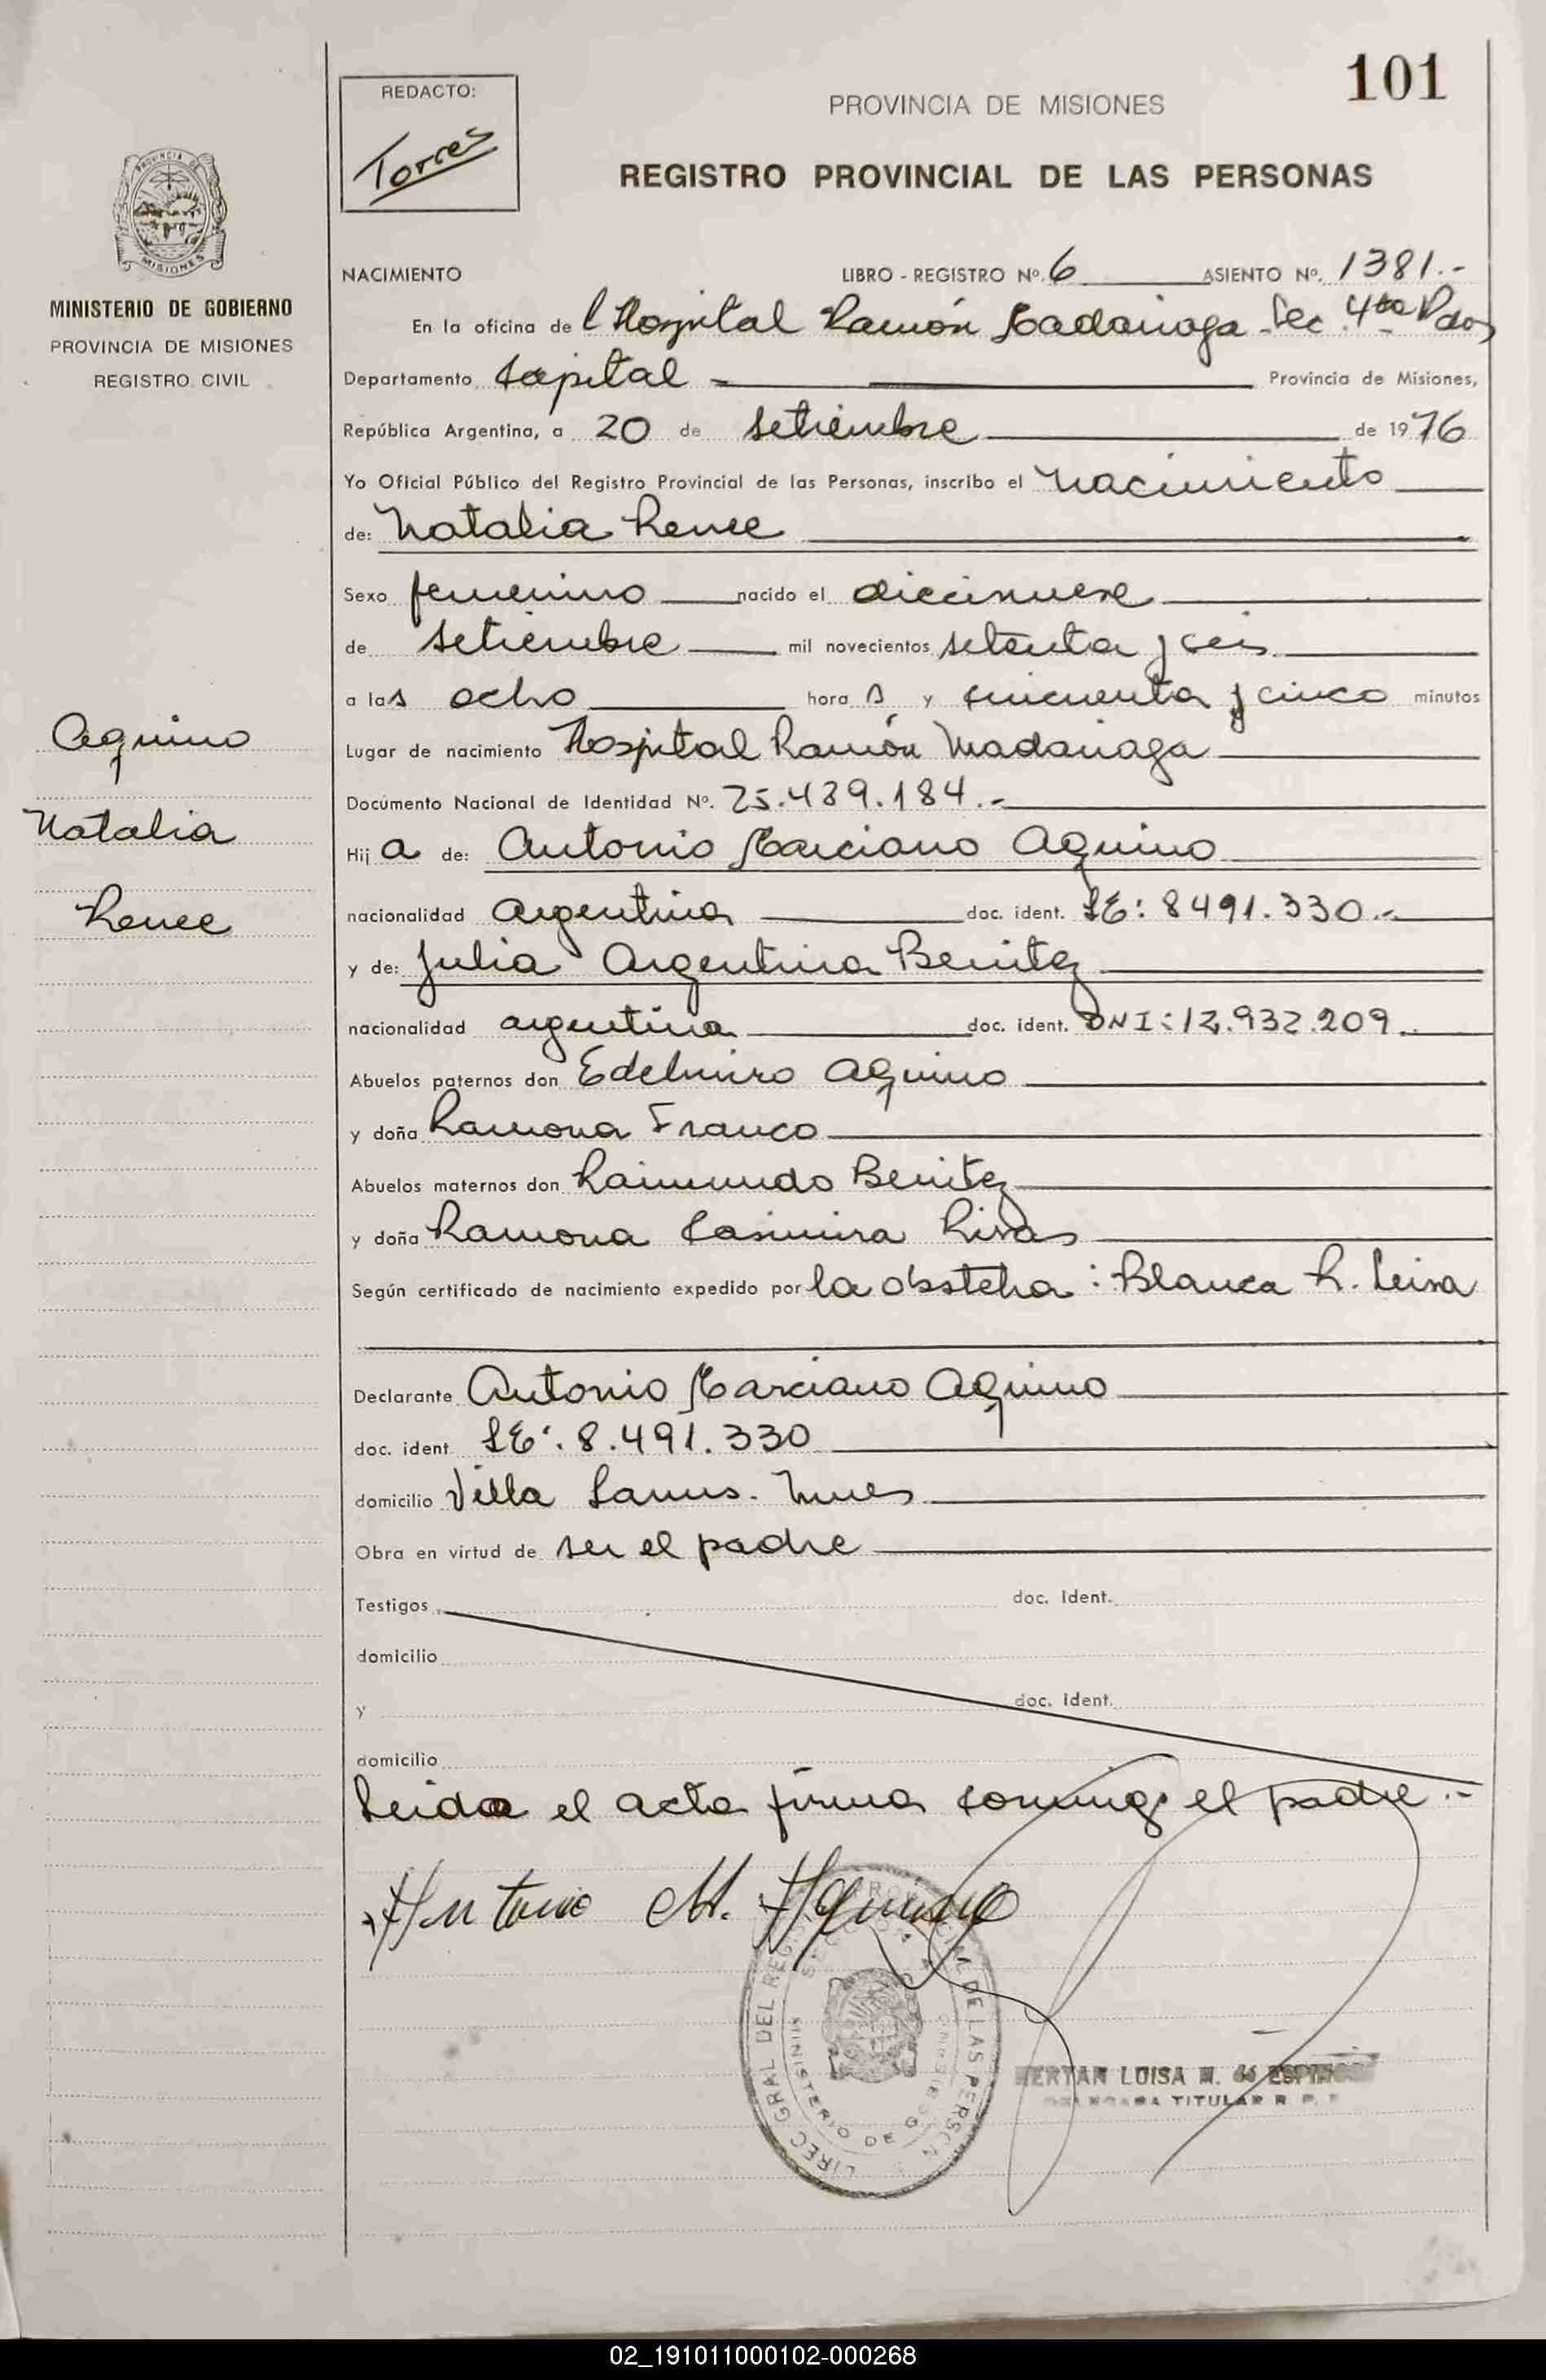 101
REDACTO:
Torres
PROVINCIA DE MISIONES
REGISTRO PROVINCIAL DE LAS PERSONAS
PROVINCIA DE
MISIONES
MINISTERIO DE GOBIERNO
PROVINCIA DE MISIONES
REGISTRO CIVIL
NACIMIENTO LIBRO - REGISTRO Nº. 6 ASIENTO Nº. 1381.-
En la oficina de l Hospital Ramón Madariaga - Sec. 4ta Pdas
Departamento Capital - Provincia de Misiones,
República Argentina, a 20 de setiembre de 1976
Yo Oficial Público del Registro Provincial de las Personas, inscribo el nacimiento
de: Natalia Renee
Sexo femenino nacido el diecinueve
de setiembre mil novecientos setenta y seis
a las ocho hora s y cincuenta y cinco minutos
Lugar de nacimiento Hospital Ramón Madariaga
Documento Nacional de Identidad Nº. 25.439.184.-
Hij a de: Antonio Marciano Aquino
nacionalidad argentina doc. ident. LE: 8491.330.-
y de: Julia Argentina Benitez
nacionalidad argentina doc. ident. DNI: 12.932.209.
Abuelos paternos don Edelmiro Aquino
y doña Ramona Franco
Abuelos maternos don Raimundo Benitez
y doña Ramona Casimira Rivas
Según certificado de nacimiento expedido por la obstetra: Blanca R. Leiva
Declarante Antonio Marciano Aquino
doc. ident. LE: 8.491.330
domicilio Villa Lanus. Mnes
Obra en virtud de ser el padre
Testigos doc. Ident.
domicilio
y doc. ident.
domicilio
Leida el acta firma conmigo el padre.-
Antonio M. Aquino
Aquino
Natalia
Renee
DIREC. GRAL DEL REG. PROVINCIAL DE LAS PERSON
MINISTERIO DE GOBIERNO
LUISA M. de
TITULAR R. P. P.
02_191011000102-000268